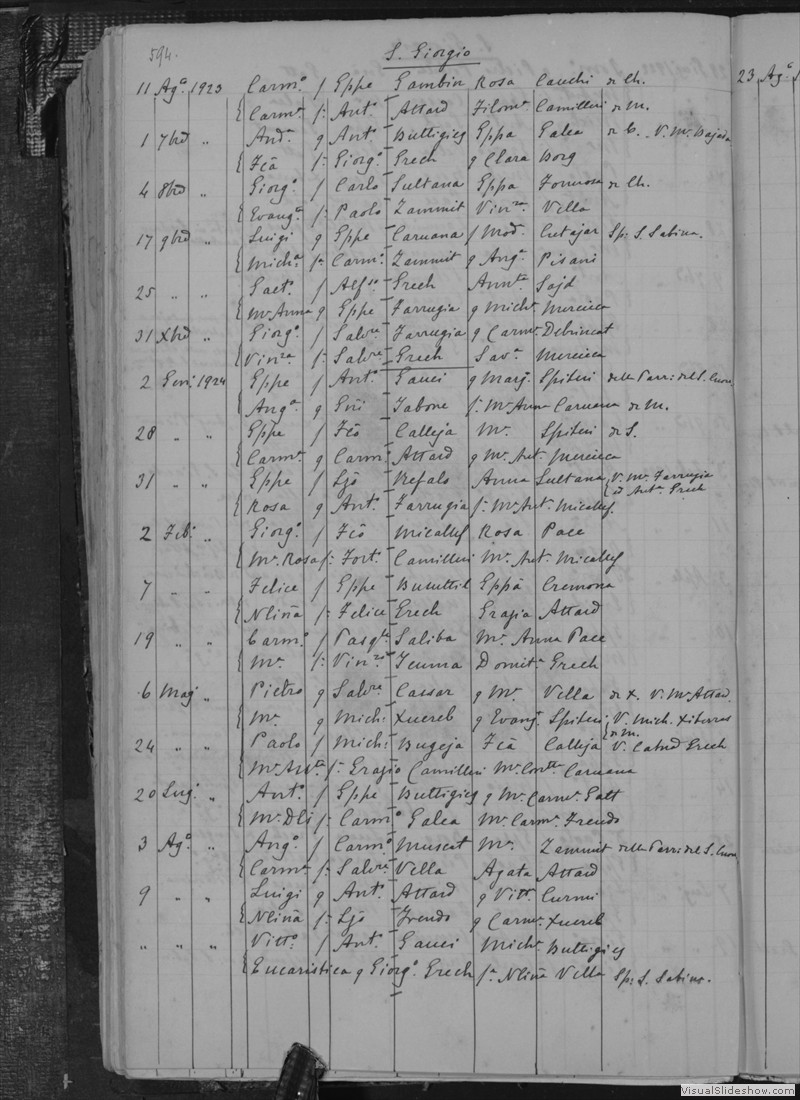 594.
S. Giorgio
11 Agº 1923 Carmº f Eppe Gambin Rosa Cauchi di Ch. 23 Agº
Carmª f: Antº Attard Filomª Camilleri di M.
1 7bre „ Andª q Antº Buttigieg Eppa Galea di C. V. Mª Bajada
Fcã f: Giorgº Grech q Clara Borg
4 8bre „ Giorgº f Carlo Sultana Eppa Formosa di Ch.
Evangª f: Paolo Zammit Vinzª Vella
17 9bre „ Luigi q Eppe Caruana f Mod. Cutajar Sp: S. Sabina.
Michª fª Carmº Zammit q Angª Pisani
25 „ „ Gaetº f Alfso Grech Annta Sajd
Mª Anna q Eppe Farrugia q Michª Mercieca
31 Xbre „ Giorgº f Salvre Farrugia q Carmª Debrincat
Vinzª f: Salvre Grech Savª Mercieca
2 Gen: 1924 Eppe f Antº Gauci q Marg. Spiteri della Parr: del S. Cuore
Angª q Gni Tabone f: Mª Anna Caruana di M.
28 „ „ Eppe f Fcõ Calleja Mª Spiteri di S.
Carmª q Carmº Attard q Mª Antª Mercieca
31 „ „ Eppe f Ljõ Refalo Anna Sultana V. Mª Farrugia
ed Antª Grech
Rosa q Antº Farrugia f: Mª Antª Micallef
2 Feb: „ Giorgº f Fcõ Micallef Rosa Pace
Mª Rosa f: Fort. Camilleri Mª Antª Micallef
7 „ „ Felice f Eppe Busuttil Eppã Cremona
Nlinã f: Felice Grech Grazia Attard
19 „ „ Carmº f Pasqle Saliba Mª Anna Pace
Mª f: Vinzº Teuma Domitª Grech
6 Mag „ Pietro q Salvre Cassar q Mª Vella di X. V. Mª Attard
Mª q Mich: Xuereb q Evang. Spiteri V. Mich. Xiberras
di M.
24 „ „ Paolo f Mich: Bugeja Fcã Calleja V. Catnã Grech
Mª Antta f: Grazio Camilleri Mª Conctta Caruana
20 Lug: „ Antº f Eppe Buttigieg q Mª Carmª Gatt
Mª Dls f: Carmº Galea Mª Carmª Frendo
3 Agº „ Angº f Carmº Muscat Mª Zammit della Parr: del S. Cuore
Carmª f: Salvre Vella Agata Attard
9 „ „ Luigi q Antº Attard q Vittª Curmi
Nlinã f: Ljõ Frendo q Carmª Xuereb
„ „ „ Vittº f Antº Gauci Michª Buttigieg
Eucaristica q Giorgº Grech fª Nlinã Vella Sp: S. Sabina.
VisualSlideshow.com